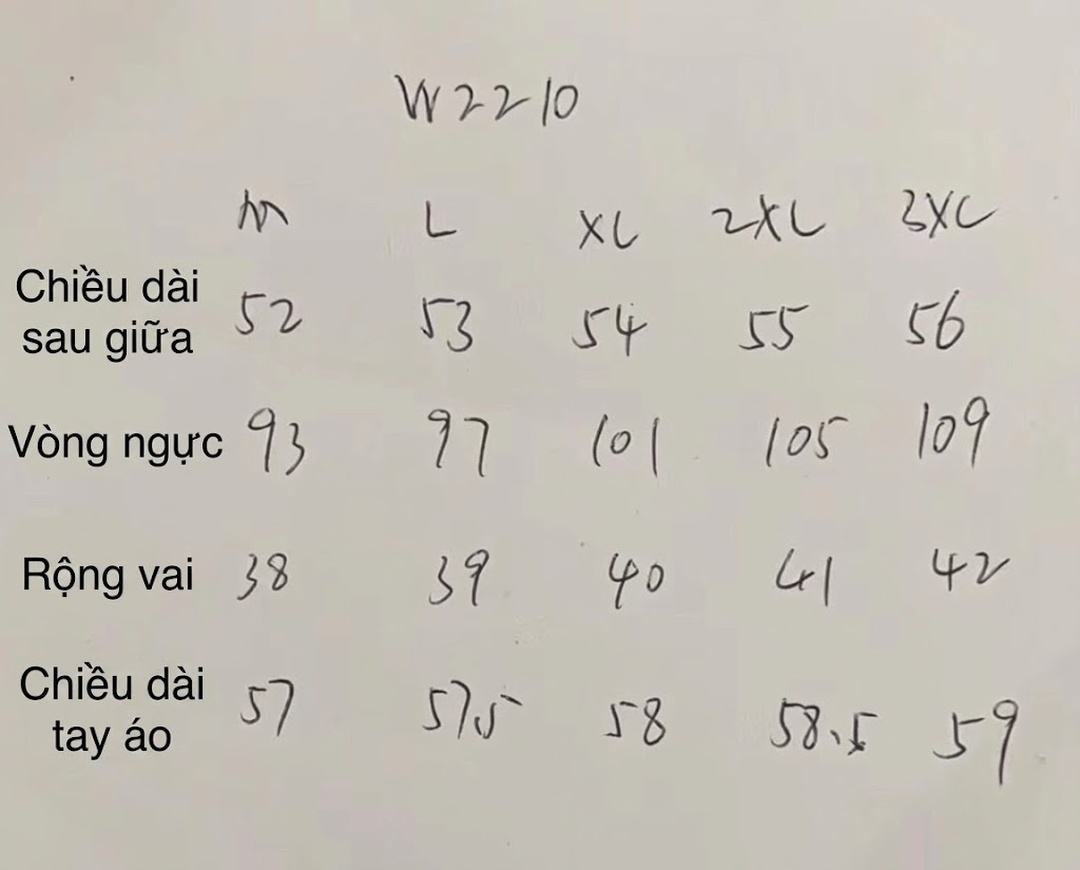 W2210
M L XL 2XL 3XL
Chiều dài
sau giữa 52 53 54 55 56
Vòng ngực 93 97 101 105 109
Rộng vai 38 39 40 41 42
Chiều dài
tay áo 57 57.5 58 58.5 59